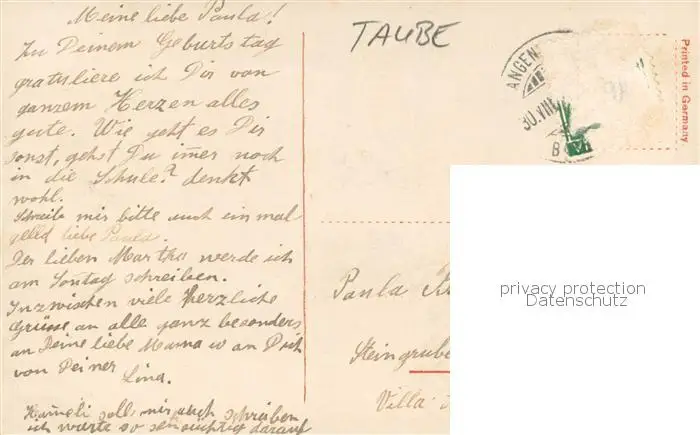 Meine liebe Paula!
Zu Deinem Geburtstag
gratuliere ich Dir von
ganzem Herzen alles
gute. Wie geht es Dir
sonst, gehst Du imer noch
in die Schule? denkt
wohl.
Schreib mir bitte auch einmal
gelld liebe Paula.
Der lieben Martha werde ich
am Sontag schreiben.
Inzwischen viele Herzliche
Grüsse an alle ganz besonders
an Deine liebe Mama u an Dich
von Deiner
Lina.
soll mir auch schreiben
ich warte so sehnsüchtig darauf
TAUBE
ANGEN
30.VII
Printed in Germany
Paula
Steingrube
Villa
privacy protection
Datenschutz